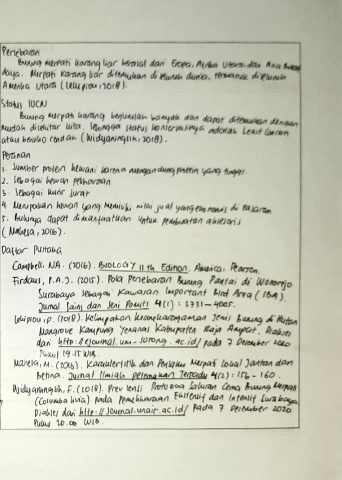 Persebaran
Burung merpati karang liar berasal dari Eropa, Afrika Utara, dan Asia Barat
daya. Merpati karang liar ditemukan di seluruh dunia, termasuk di seluruh
Amerika Utara (Lekipiou, 2018).
Status IUCN
Burung merpati karang berjumlah banyak dan dapat ditemukan dengan
mudah disekitar kita, sehingga status konservasinya adalah Least Concern
atau berisiko rendah (Widyaningsih, 2018).
Peranan
1. Sumber protein hewani karena mengandung protein yang tinggi.
2. Sebagai hewan peliharaan
3. Sebagai kurir surat
4. Merupakan hewan yang memiliki nilai jual yang ekonomis di pasaran
5. Bulunya dapat dimanfaatkan untuk pembuatan aksesoris
(Mahesa, 2016).
Daftar Pustaka
Campbell, NA. (2016). BIOLOGY 11th Edition. America, Pearson.
Firdaus, P.A.J. (2015). Pola Penebaran Burung Pantai di Wonorejo
Surabaya sebagai Kawasan Important Bird Area (IBA).
Jurnal Sains dan Seni Pomits 4(1): 3731-4005.
Lekipiou, P. (2018). Kelimpahan Keanekaragaman Jenis Burung di Hutan
Mangrove Kampung Yenanas Kabupaten Raja Ampat. Diakses
dari http://ejournal.um-sorong.ac.id/ pada 7 Desember 2020
Pukul 19.15 WIB.
Mahesa, M. (2016). Karakteristik dan Perilaku Merpati Lokal Jantan dan
Betina. Jurnal Ilmiah Peternakan Terpadu 4(2): 156-160.
Widyaningsih, F. (2018). Prevalensi Protozoa Saluran Cerna Burung Merpati
(Columba livia) pada Pemeliharaan Ekstensif dan Intensif Surabaya
Diakses dari http://journal.unair.ac.id/ Pada 7 Desember 2020
Pukul 20.00 WIB.